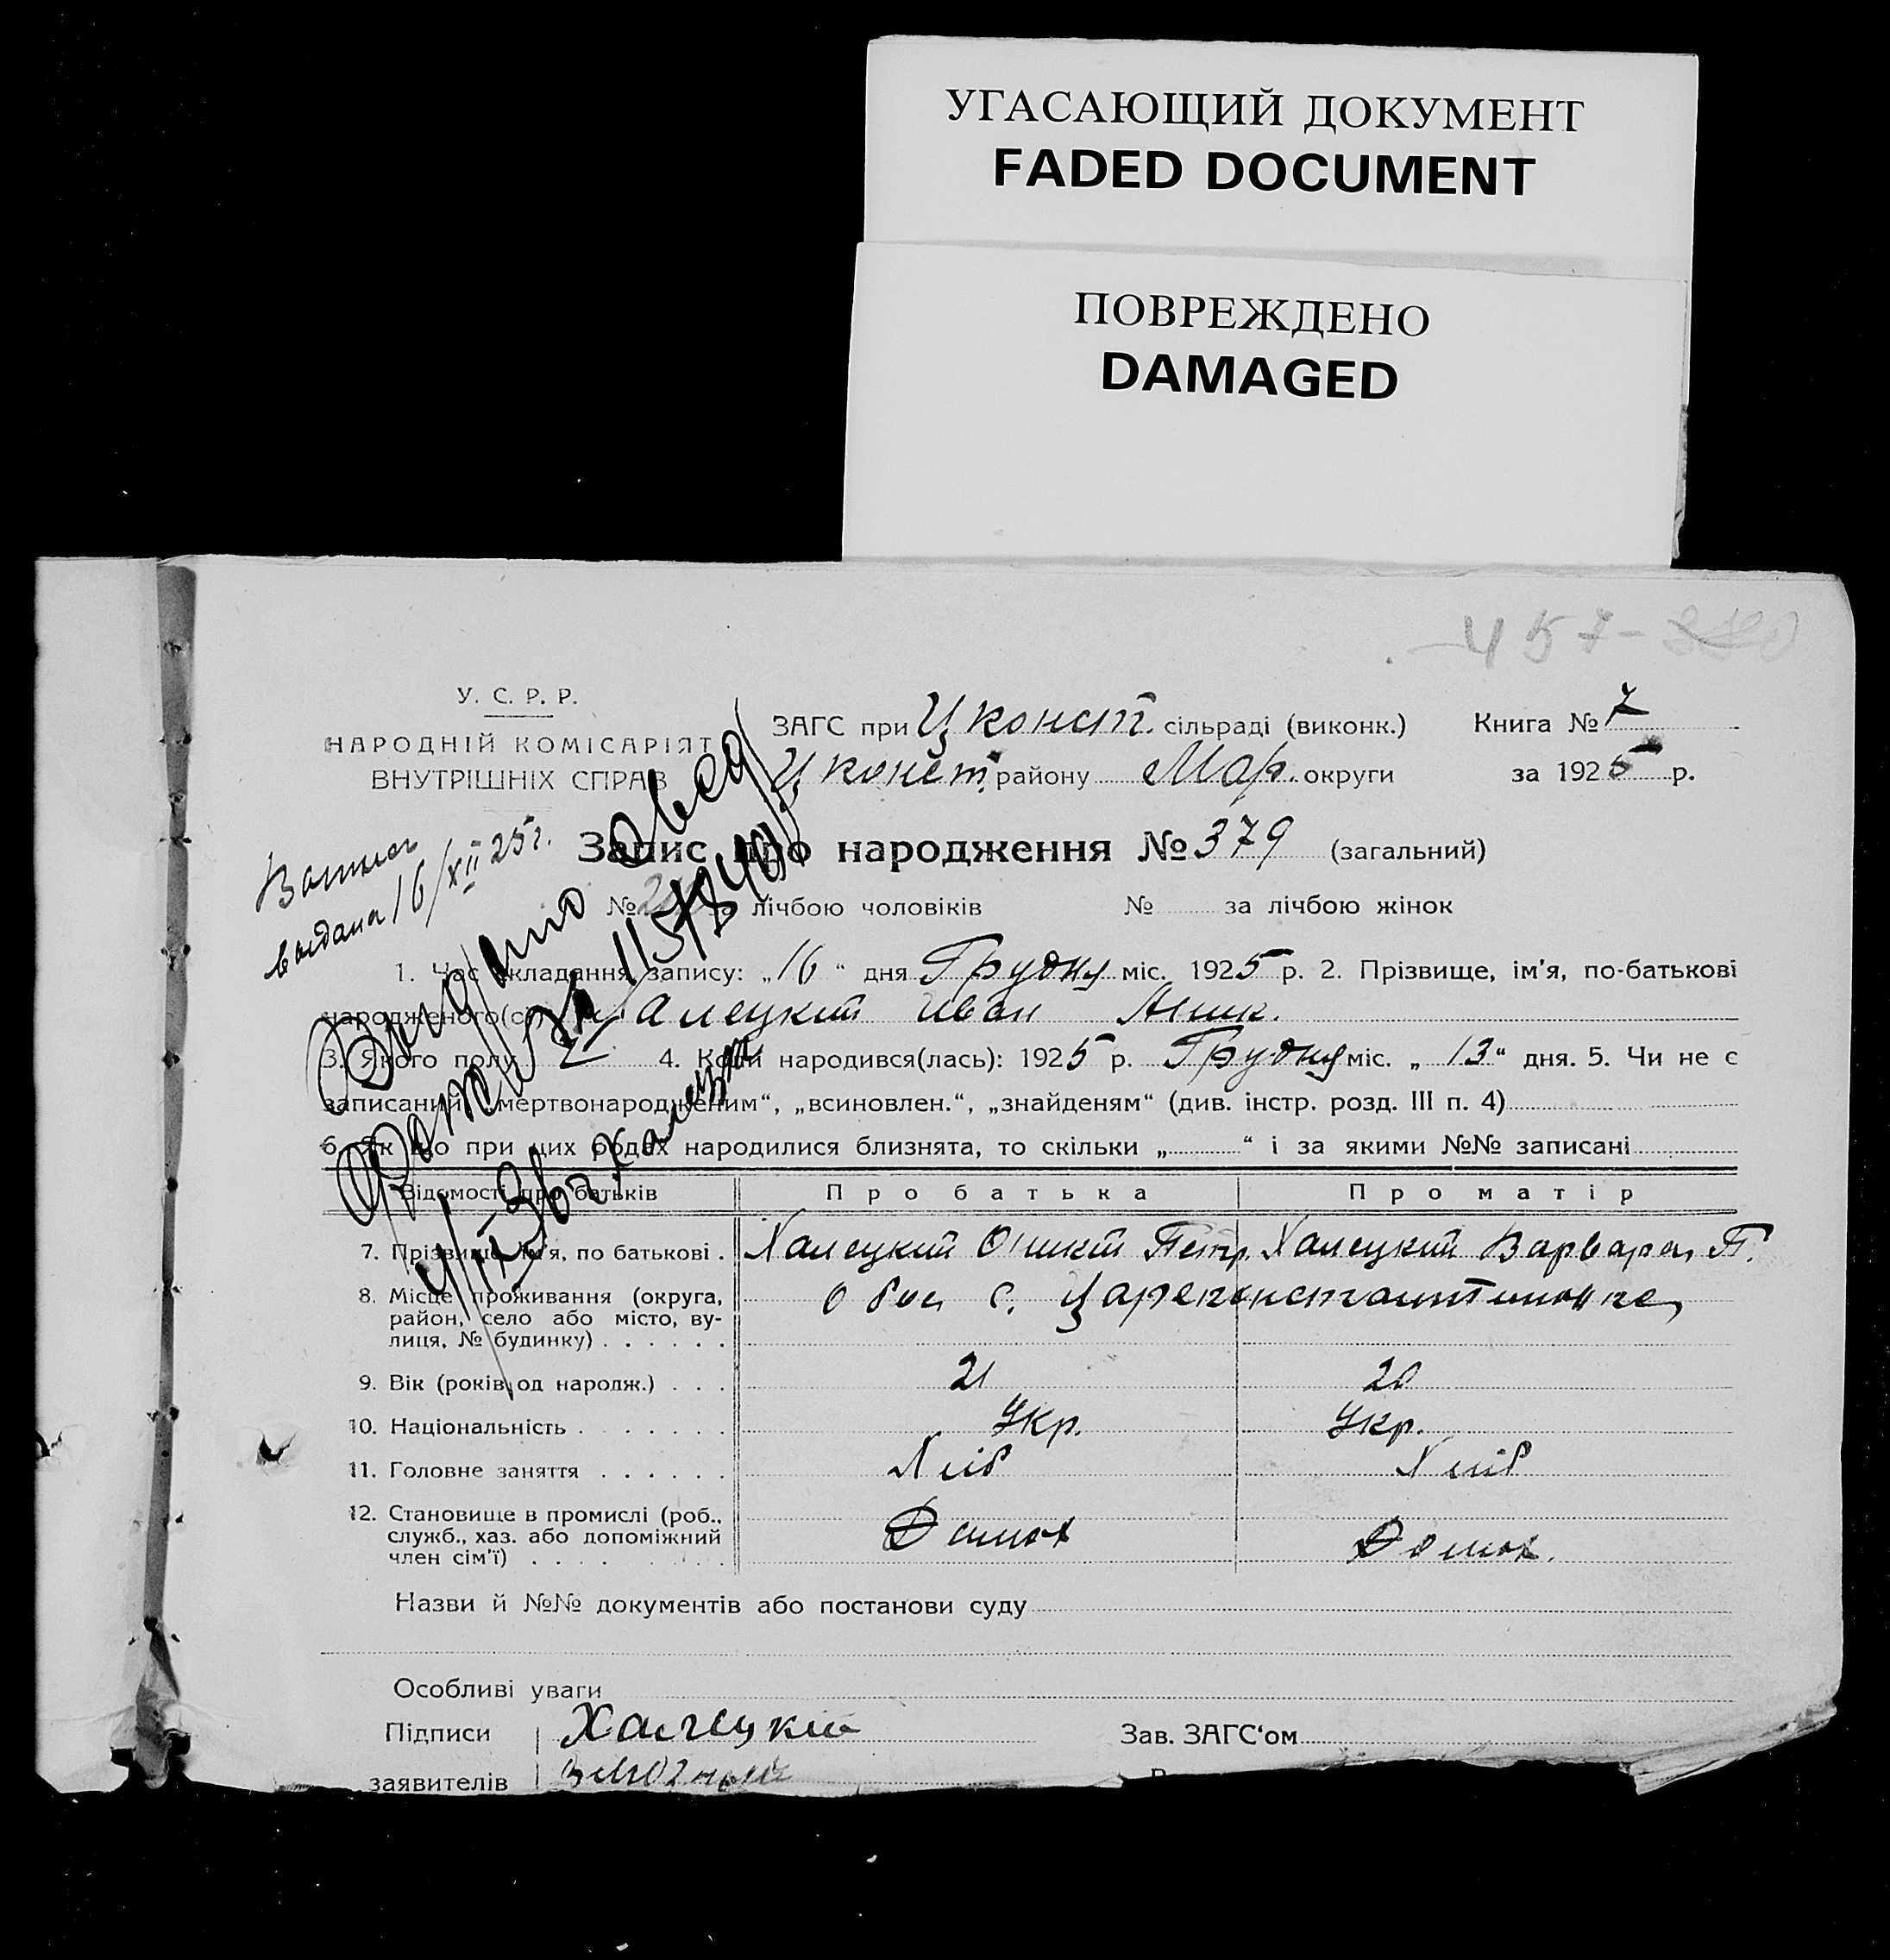 УГАСАЮЩИЙ ДОКУМЕНТ
FADED DOCUMENT
ПОВРЕЖДЕНО
DAMAGED
457-
У. С. Р. Р.
НАРОДНІЙ КОМІСАРІЯТ
ВНУТРІШНІХ СПРАВ
ЗАГС при Ц конст. сільраді (виконк.) Книга № 7
Ц конст. району Мар. округи за 1925 р.
выдана 16/XII 25 г.
Запис про народження № 379 (загальний)
№ за лічбою чоловіків № за лічбою жінок
1. Час складання запису: „16“ дня Грудня міс. 1925 р. 2. Прізвище, ім’я, по-батькові
народженого(сі) Халецкий Иван Аник.
3. Якого полу 4. Коли народився(лась): 1925 р. Грудня міс. „13“ дня. 5. Чи не є
записаний „мертвонародженим“, „всиновлен.“, „знайденям“ (див. інстр. розд. III п. 4)
6. Як що при цих родах народилися близнята, то скільки „ “ і за якими №№ записані
Відомості про батьків Про батька Про матір
7. Прізвище, ім’я, по батькові . Халецкий Петр. Халецкий Варвара П.
8. Місце проживання (округа, район, село або місто, вулиця, № будинку) . . . . . . Оба с. Цареконстантиновка
9. Вік (років од народж.) . . . 21 20
10. Національність . . . . . . . Укр. Укр.
11. Головне заняття . . . . . . Хліб Хліб
12. Становище в промислі (роб., служб., хаз. або допоміжний член сім’ї) . . . .
Назви й №№ документів або постанови суду
Особливі уваги
Підписи Халецкий Зав. ЗАГС‘ом
заявителів